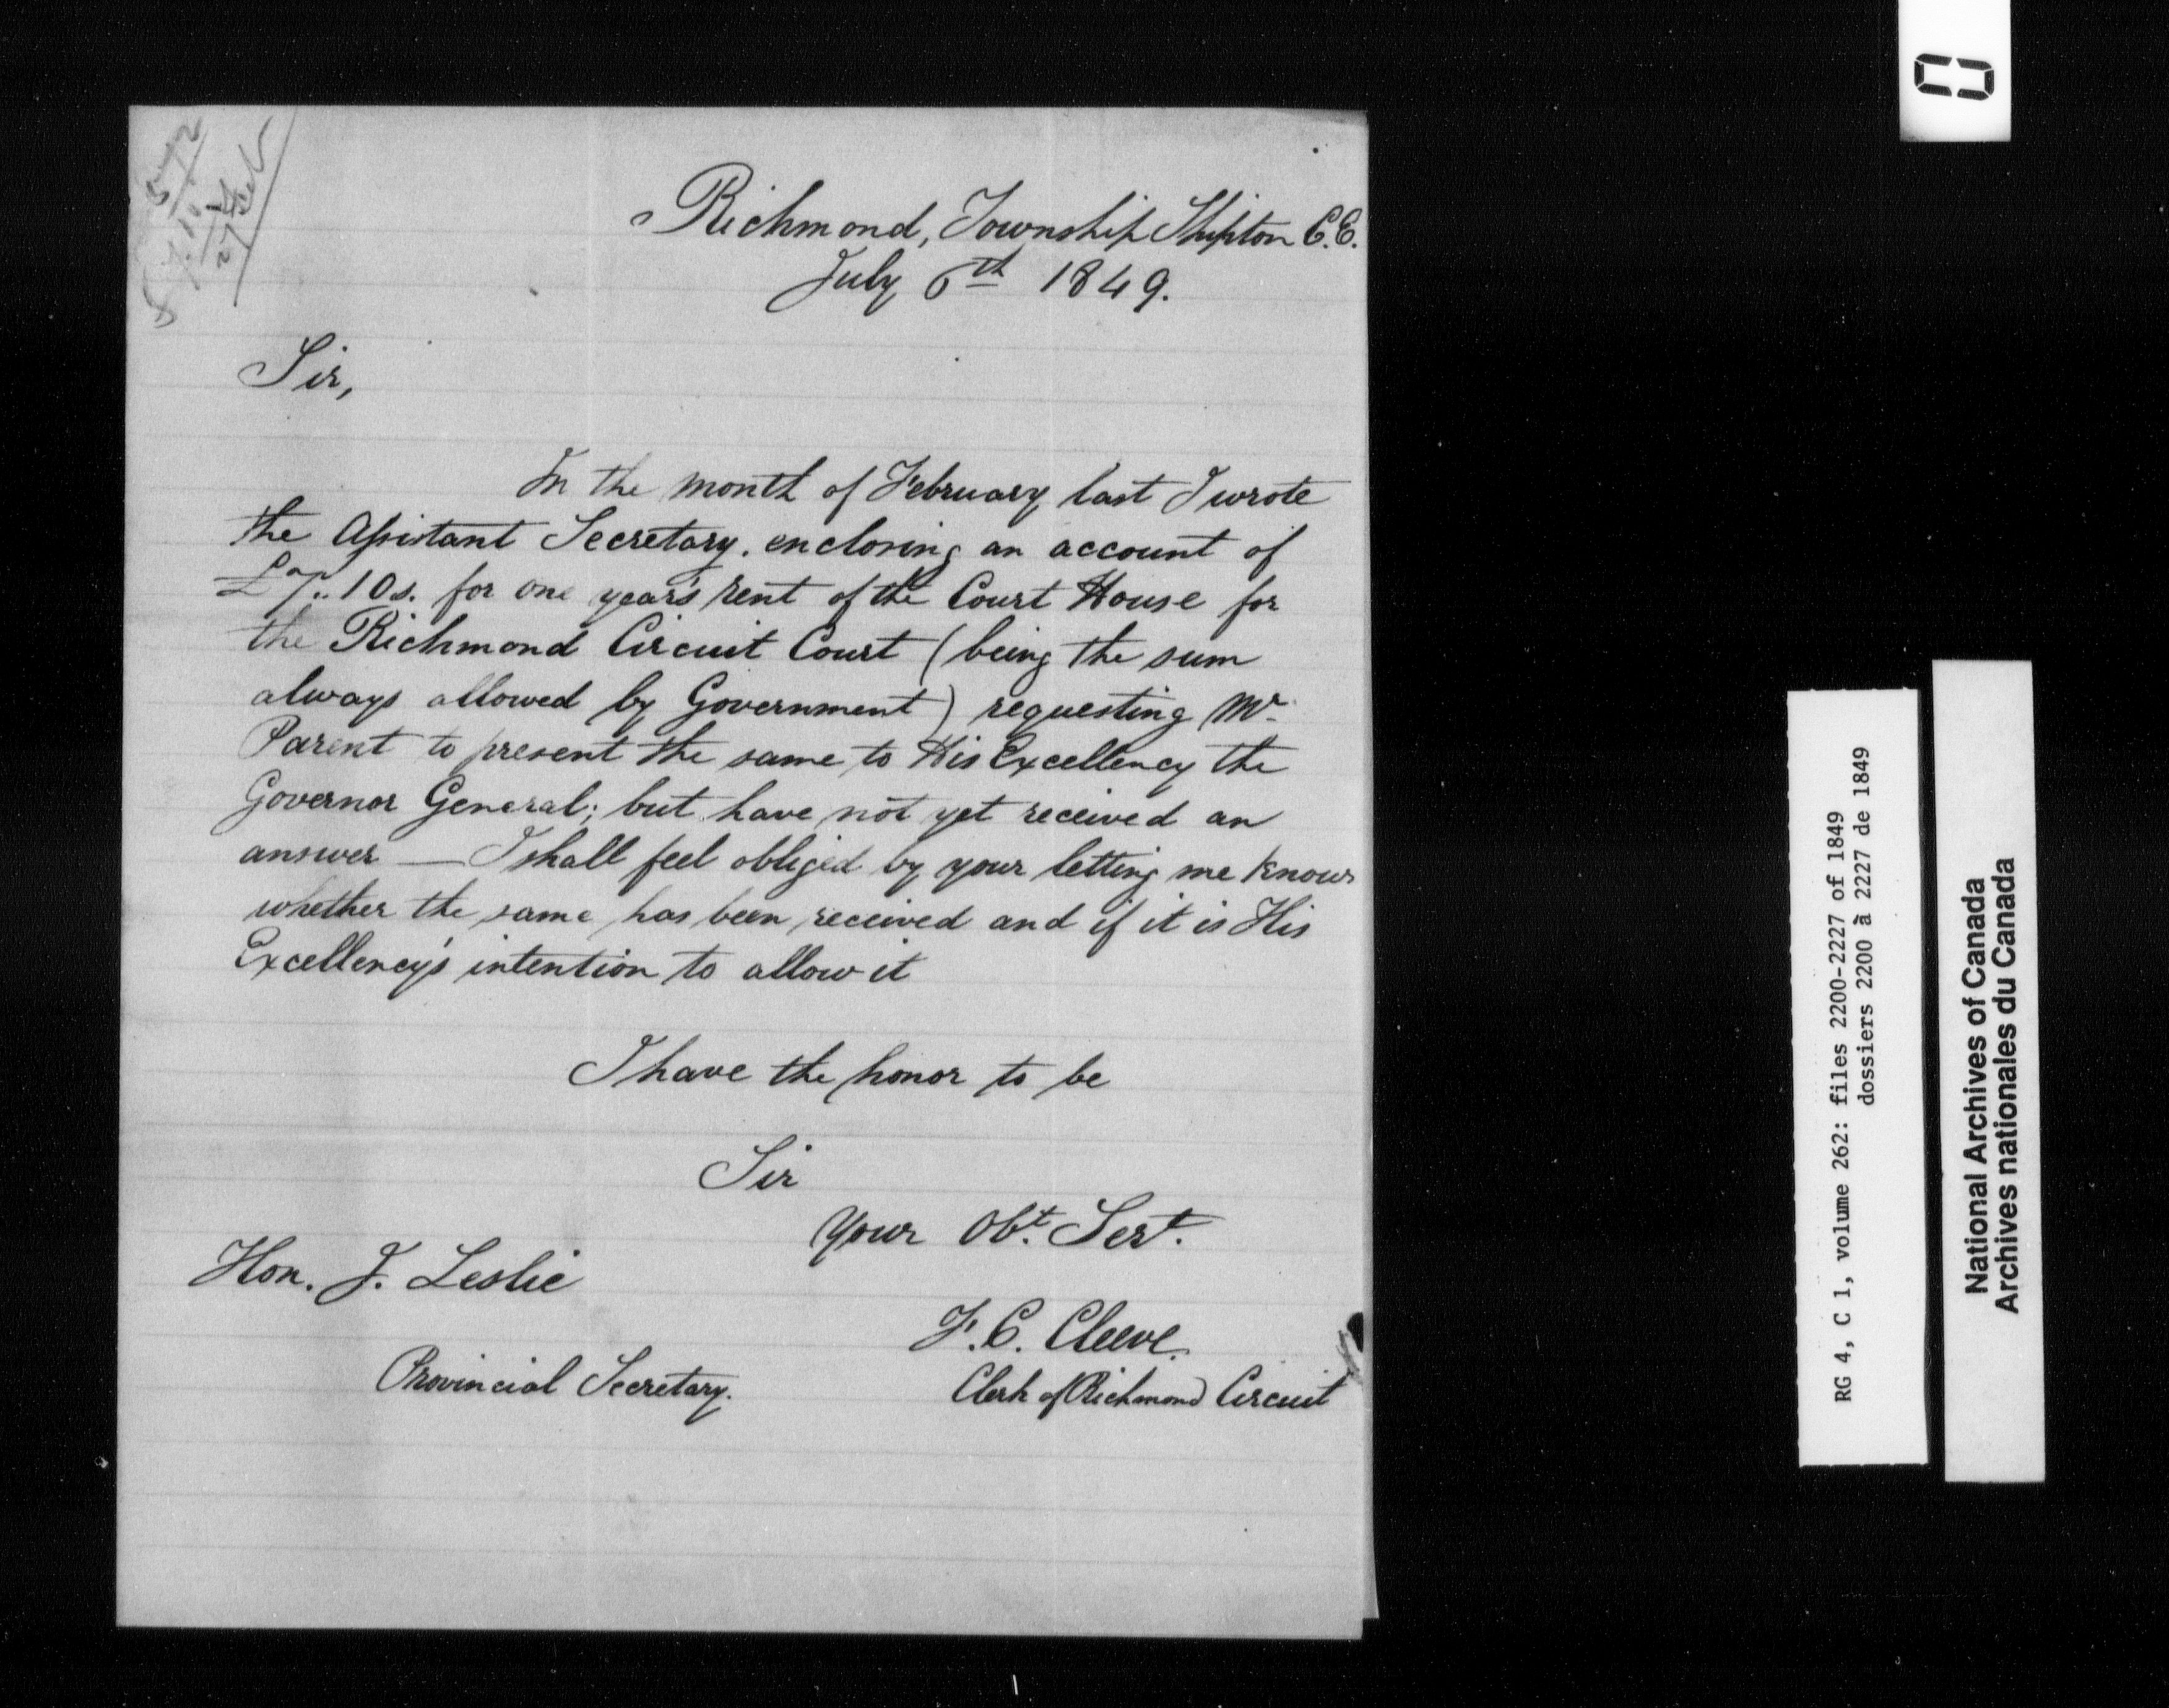 Richmond, Township Shipton C.E.
July 6th 1849.
Sir,
In the month of February last I wrote
the Assistant Secretary. enclosing an account of
£7.. 10s. for one year's rent of the Court House for
the Richmond Circuit Court (being the sum
always allowed by Government) requesting Mr.
Parent to present the same to His Excellency the
Governor General; but have not yet received an
answer — I shall feel obliged by your letting me know
whether the same has been received and if it is His
Excellency's intention to allow it
I have the honor to be
Sir
Your Obt. Sert.
Hon. J. Leslie
F. C. Cleeve.
Provincial Secretary.
Clerk of Richmond Circuit
RG 4, C 1, volume 262: files 2200-2227 of 1849
dossiers 2200 à 2227 de 1849
National Archives of Canada
Archives nationales du Canada